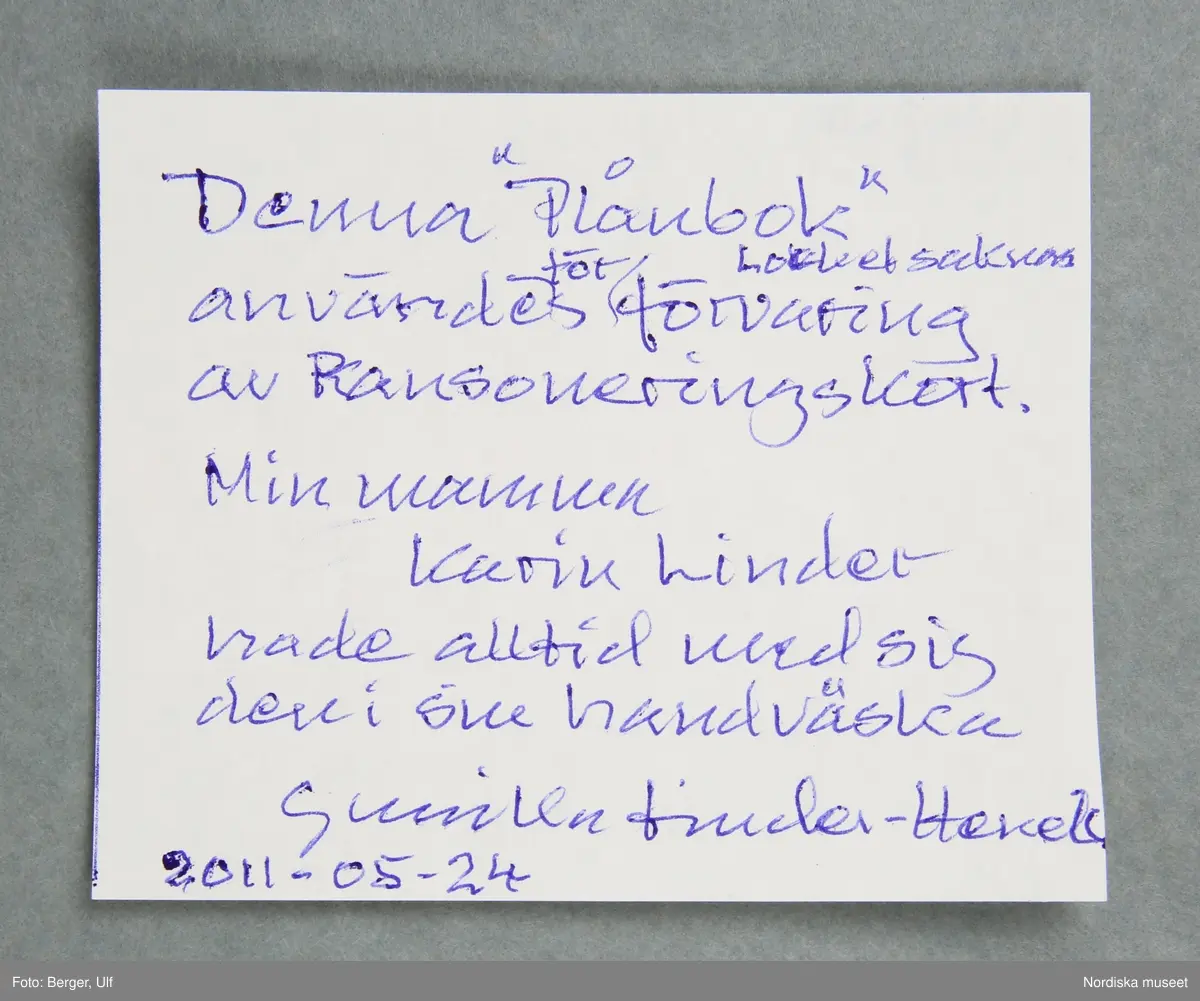 Denna "Plånbok"
för Locket saknas
användes förvaring
av Ransoneringskort.
Min mamma
Karin Linder
hade alltid med sig
den i sin handväska
Gunilla Linder-
2011-05-24
Foto: Berger, Ulf
Nordiska museet